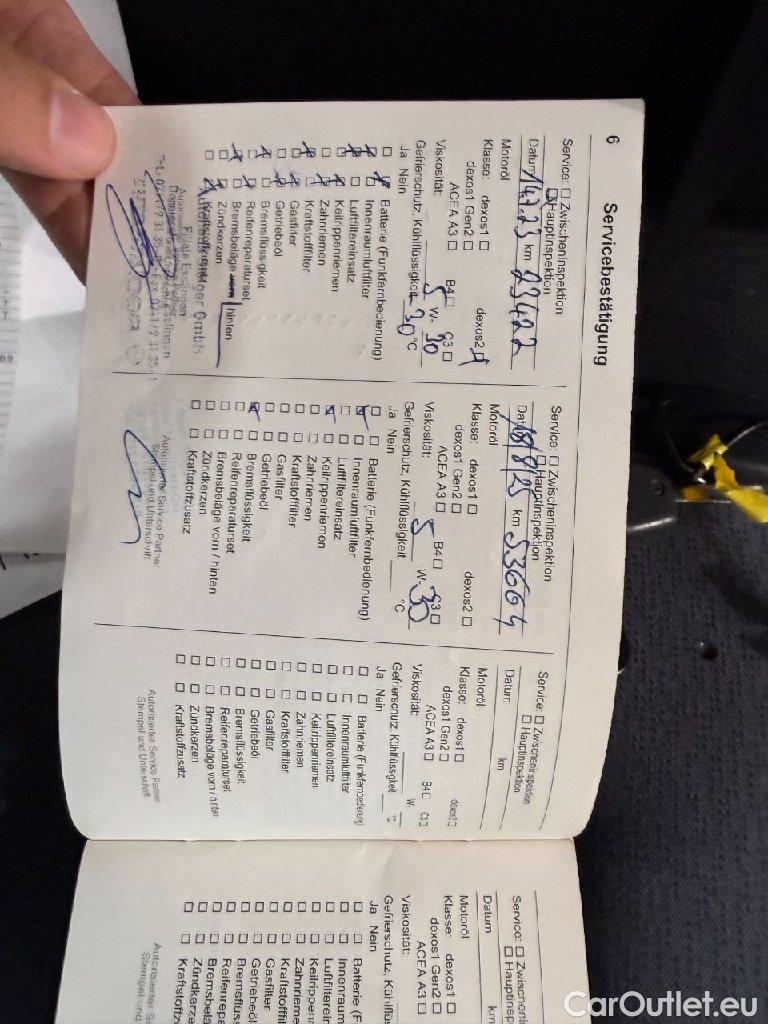 6
Servicebestätigung
Service: ☐ Zwischeninspektion
☑ Hauptinspektion
Datum 14.7.23 km 23422
Motoröl
Klasse: dexos1 ☐ dexos2 ☒
dexos1 Gen2 ☐
ACEA A3 ☐ B4 ☐ C3 ☐
Viskosität: 5 W- 30
Gefrierschutz, Kühlflüssigkeit -30 °C
Ja Nein
Batterie (Funkfernbedienung)
Innenraumluftfilter
Luftfiltereinsatz
Keilrippenriemen
Zahnriemen
Kraftstofffilter
Gasfilter
Getriebeöl
Bremsflüssigkeit
Reifenreparaturset
Bremsbeläge vorn / hinten
Zündkerzen
GmbH
Filiale Esslingen
Service: ☐ Zwischeninspektion
☐ Hauptinspektion
Datum 18/8/25 km 53664
Motoröl
Klasse: dexos1 ☐ dexos2 ☐
dexos1 Gen2 ☐
ACEA A3 ☐ B4 ☐ C3 ☐
Viskosität: 5 W- 30
Gefrierschutz, Kühlflüssigkeit ____ °C
Ja Nein
Batterie (Funkfernbedienung)
Innenraumluftfilter
Luftfiltereinsatz
Keilrippenriemen
Zahnriemen
Kraftstofffilter
Gasfilter
Getriebeöl
Bremsflüssigkeit
Reifenreparaturset
Bremsbeläge vorn / hinten
Zündkerzen
Kraftstoffzusatz
Autorisierter Service Partner
Stempel und Unterschrift
Service: ☐ Zwischeninspektion
☐ Hauptinspektion
Datum km
Motoröl
Klasse: dexos1 ☐ dexos2 ☐
dexos1 Gen2 ☐
ACEA A3 ☐ B4 ☐ C3 ☐
Viskosität: W-
Gefrierschutz, Kühlflüssigkeit ____ °C
Ja Nein
Batterie (Funkfernbedienung)
Innenraumluftfilter
Luftfiltereinsatz
Keilrippenriemen
Zahnriemen
Kraftstofffilter
Gasfilter
Getriebeöl
Bremsflüssigkeit
Reifenreparaturset
Bremsbeläge vorn / hinten
Zündkerzen
Kraftstoffzusatz
Autorisierter Service Partner
Stempel und Unterschrift
Service: ☐ Zwischenin
☐ Hauptinsp
Datum km
Motoröl
Klasse: dexos1 ☐
dexos1 Gen2 ☐
ACEA A3 ☐
Viskosität:
Gefrierschutz, Kühlflüss
Ja Nein
Batterie (F
Innenraum
Luftfilterein
Keilrippenr
Zahnriemen
Kraftstofffil
Gasfilter
Getriebeöl
Bremsflüss
Reifenrepa
Bremsbelä
Zündkerzen
Kraftstoffz
Autorisierter S
Stempel und
CarOutlet.eu